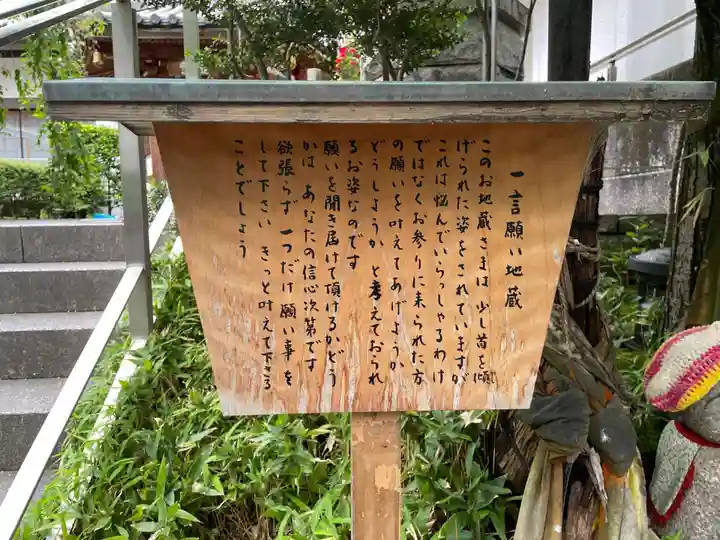 一言願い地蔵
このお地蔵さまは 少し首を傾
げられた姿をされていますが
これは悩んでいらっしゃるわけ
ではなくお参りに来られた方
の願いを叶えてあげようか
どうしようか と考えておられ
るお姿なのです
願いを聞き届けて頂けるかどう
かは あなたの信心次第です
欲張らず 一つだけ願い事を
して下さい きっと叶えて下さる
ことでしょう